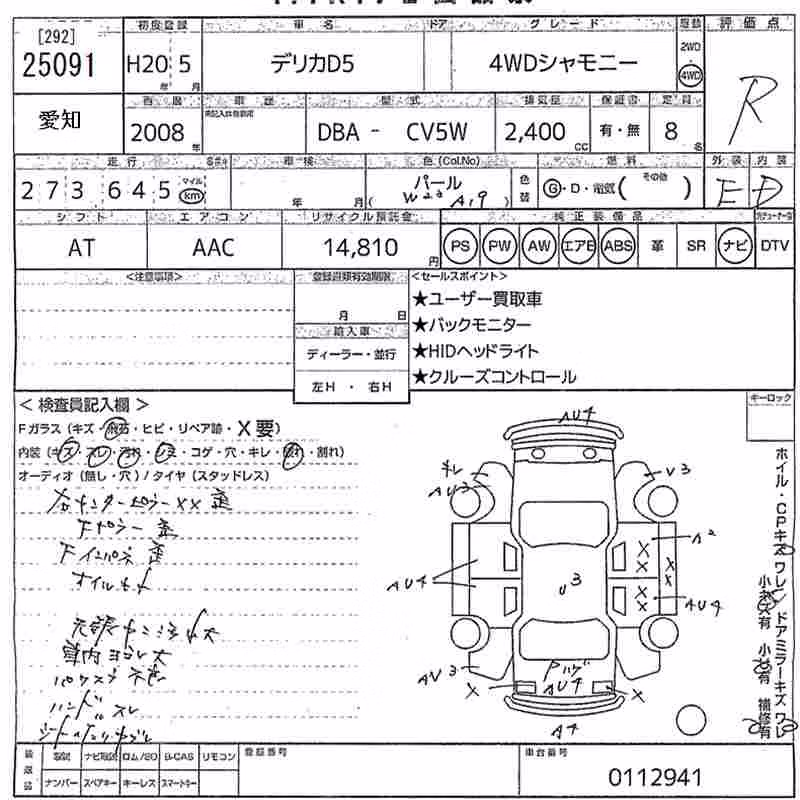 初度登録 車名 ドア グレード 駆動 評価点
[292]
25091 H20年 5月 デリカD5 4WDシャモニー 2WD 4WD R
愛知
西暦 車歴 型式 排気量 保証書 定員
2008年 DBA - CV5W 2,400cc 有・無 8名
走行 車検 色(Col.No) 燃料 外装 内装
273645 マイル km 年 月 パール (W23 A19) 色替 G・D・電気( その他 ) E D
シフト エアコン リサイクル預託金 純正装備品
AT AAC 14,810円 PS PW AW エアB ABS 革 SR ナビ DTV
<注意事項> 登録書類有効期限 <セールスポイント>
月 日
輸入車
ディーラー・並行
左H ・ 右H
★ユーザー買取車
★バックモニター
★HIDヘッドライト
★クルーズコントロール
<検査員記入欄> キーロック
Fガラス(キズ・飛石・ヒビ・リペア跡・X要)
内装(キズ・スレ・汚れ・シミ・コゲ・穴・キレ・破れ・割れ)
オーディオ(無し・穴)/タイヤ(スタッドレス)
右センターピラーXX 歪
Fピラー 歪
Fインパネ 歪
車内ヨゴレ大
ハンドルスレ
AU4
キレ
AU3
V3
A2
X
X
X
X
AU4
U3
X
X
X
X
AU4
AV3
Pハゲ
AU4
X
X
A4
ホイル・CPキズ ワレ / ドアミラーキズ ワレ
小 有 小 有 補修有
記録 ナビ取説 ロム/SD B-CAS リモコン 登録番号 車台番号
ナンバー スペアキー キーレス スマートキー 0112941